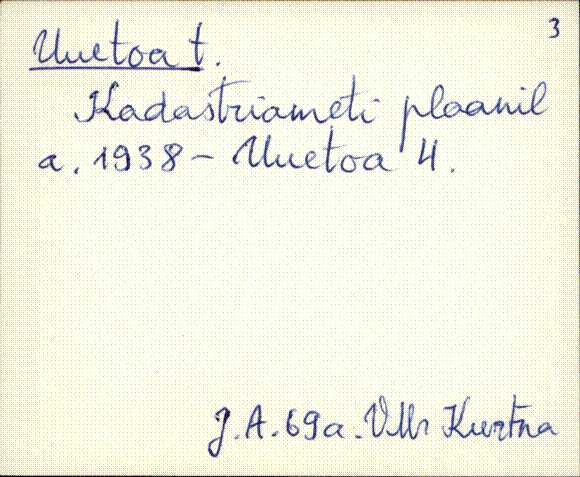 3
Uuetoa t.
Kadastriameti plaanil
a. 1938 – Uuetoa 4.
J. A. 69a. VMr Kurtna